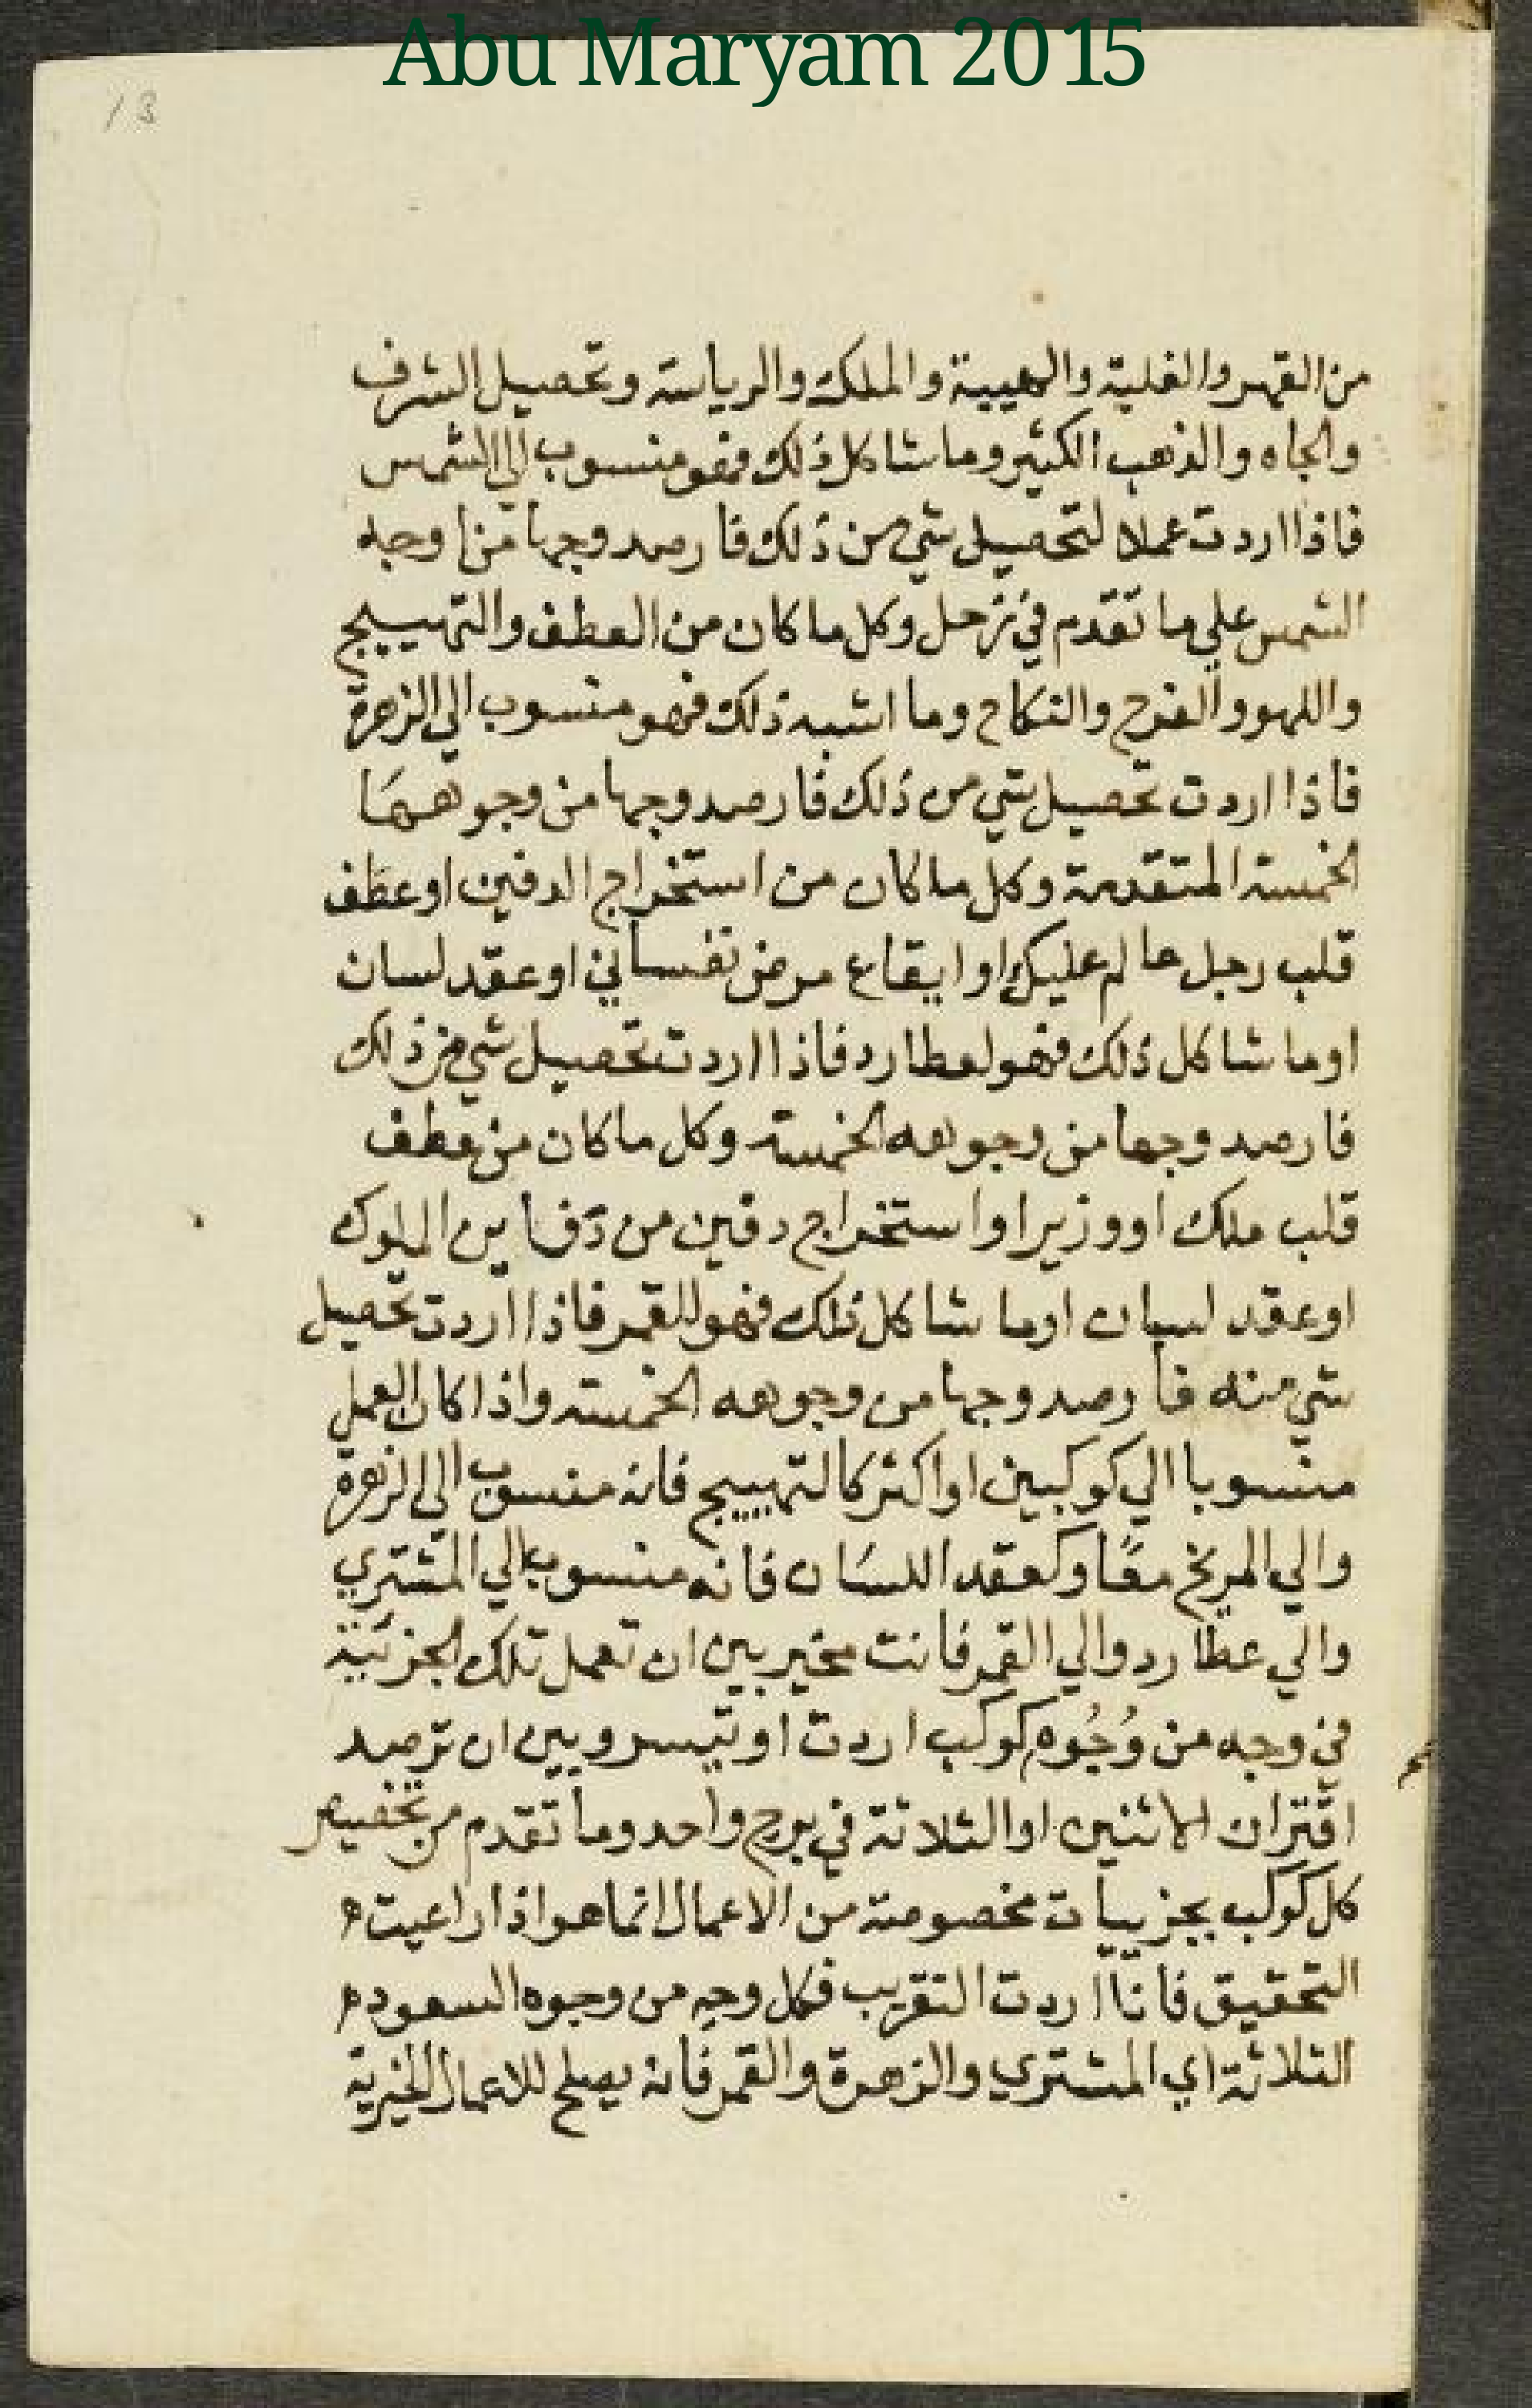 Abu Maryam 2015
13
من القهر والغلبة والهيبة والملك والرياسة وتحصيل الشرف
والجاه والذهب الكثير وما شاكل ذلك فهو منسوب الي الشمس
فاذا اردت عملا لتحصيل شي من ذلك فارصد وجها من اوجه
الشمس علي ما تقدم في زحل وكل ما كان من العطف والتهييج
واللهو والفرح والنكاح وما اشبه ذلك فهو منسوب الي الزهرة
فاذا اردت تحصيل شي من ذلك فارصد وجها من وجوهها
الخمسة المتقدمة وكل ما كان من استخراج الدفين او عطف
قلب رجل عالم عليك او ايقاع مرض نفساني او عقد لسان
او ما شاكل ذلك فهو لعطارد فاذا اردت تحصيل شي من ذلك
فارصد وجها من وجوهه الخمسة وكل ما كان من عطف
قلب ملك او وزير او استخراج دفين من دفاين الملوك
او عقد لسان او ما شاكل ذلك فهو للقمر فاذا اردت تحصيل
شي منه فارصد وجها من وجوهه الخمسة واذا كان العمل
منسوبا الي كوكبين او اكثر كالتهييج فانه منسوب الي الزهرة
والي المريخ معًا وكعقد اللسان فانه منسوب الي المشتري
والي عطارد والي القمر فانت مخير بين ان تعمل تلك الجزئية
في وجه من وُجُوه كوكب اردت او تيسر وبين ان ترصد
اقتران الاثنين او الثلاثة في برج واحد وما تقدم من تخصيص
كل كوكب بجزييات مخصوصة من الاعمال انما هو اذا راعيت
التحقيق فان اردت التقريب فكل وجه من وجوه السعود
الثلاثة اي المشتري والزهرة والقمر فانه يصلح للاعمال الخيرية